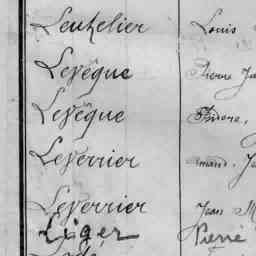 Leuthelier Louis
Levêque Pierre
Levêque Isidore,
Leverrier
Leverrier Jean M
Liger Pierre